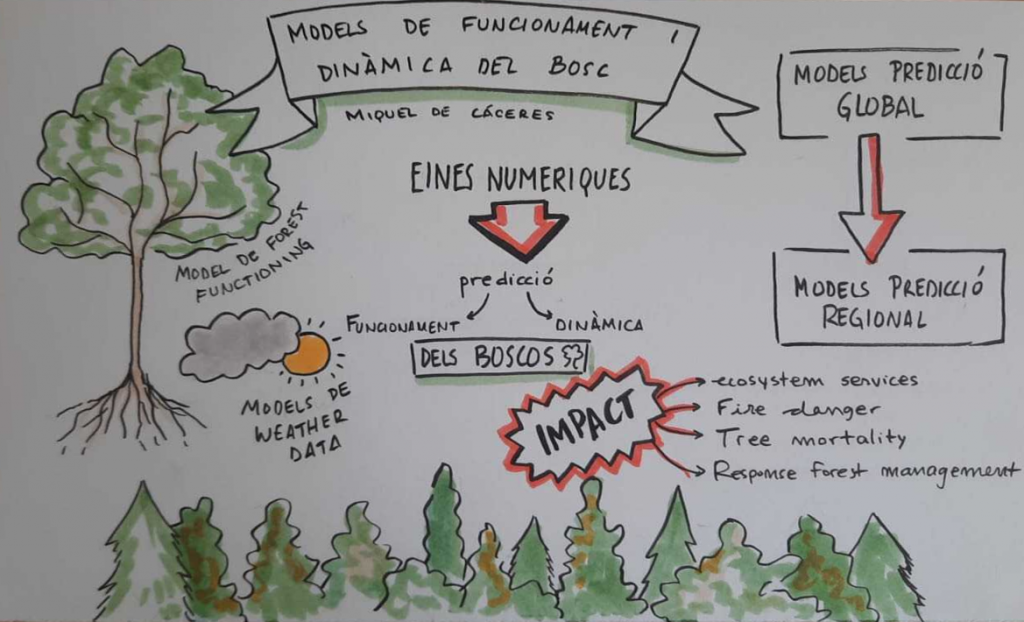 MODELS DE FUNCIONAMENT I
DINÀMICA DEL BOSC
MIQUEL DE CÁCERES
EINES NUMERIQUES
predicció
FUNCIONAMENT
DINÀMICA
DELS BOSCOS
MODEL DE FOREST
FUNCTIONING
MODELS DE
WEATHER
DATA
IMPACT
ecosystem services
Fire danger
Tree mortality
Response forest management
MODELS PREDICCIÓ
GLOBAL
MODELS PREDICCIÓ
REGIONAL